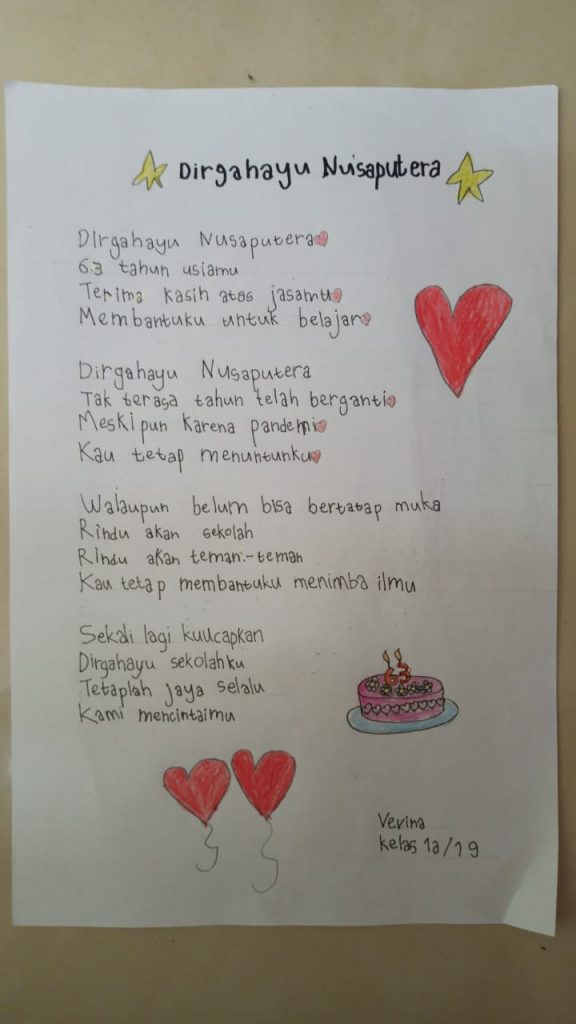 Dirgahayu Nusaputera
Dirgahayu Nusaputera
63 tahun usiamu
Terima kasih atas jasamu
Membantuku untuk belajar
Dirgahayu Nusaputera
Tak terasa tahun telah berganti
Meskipun karena pandemi
Kau tetap menuntunku
Walaupun belum bisa bertatap muka
Rindu akan sekolah
Rindu akan teman-teman
Kau tetap membantuku menimba ilmu
Sekali lagi kuucapkan
Dirgahayu sekolahku
Tetaplah jaya selalu
Kami mencintaimu
63
Verina
kelas 1a/19